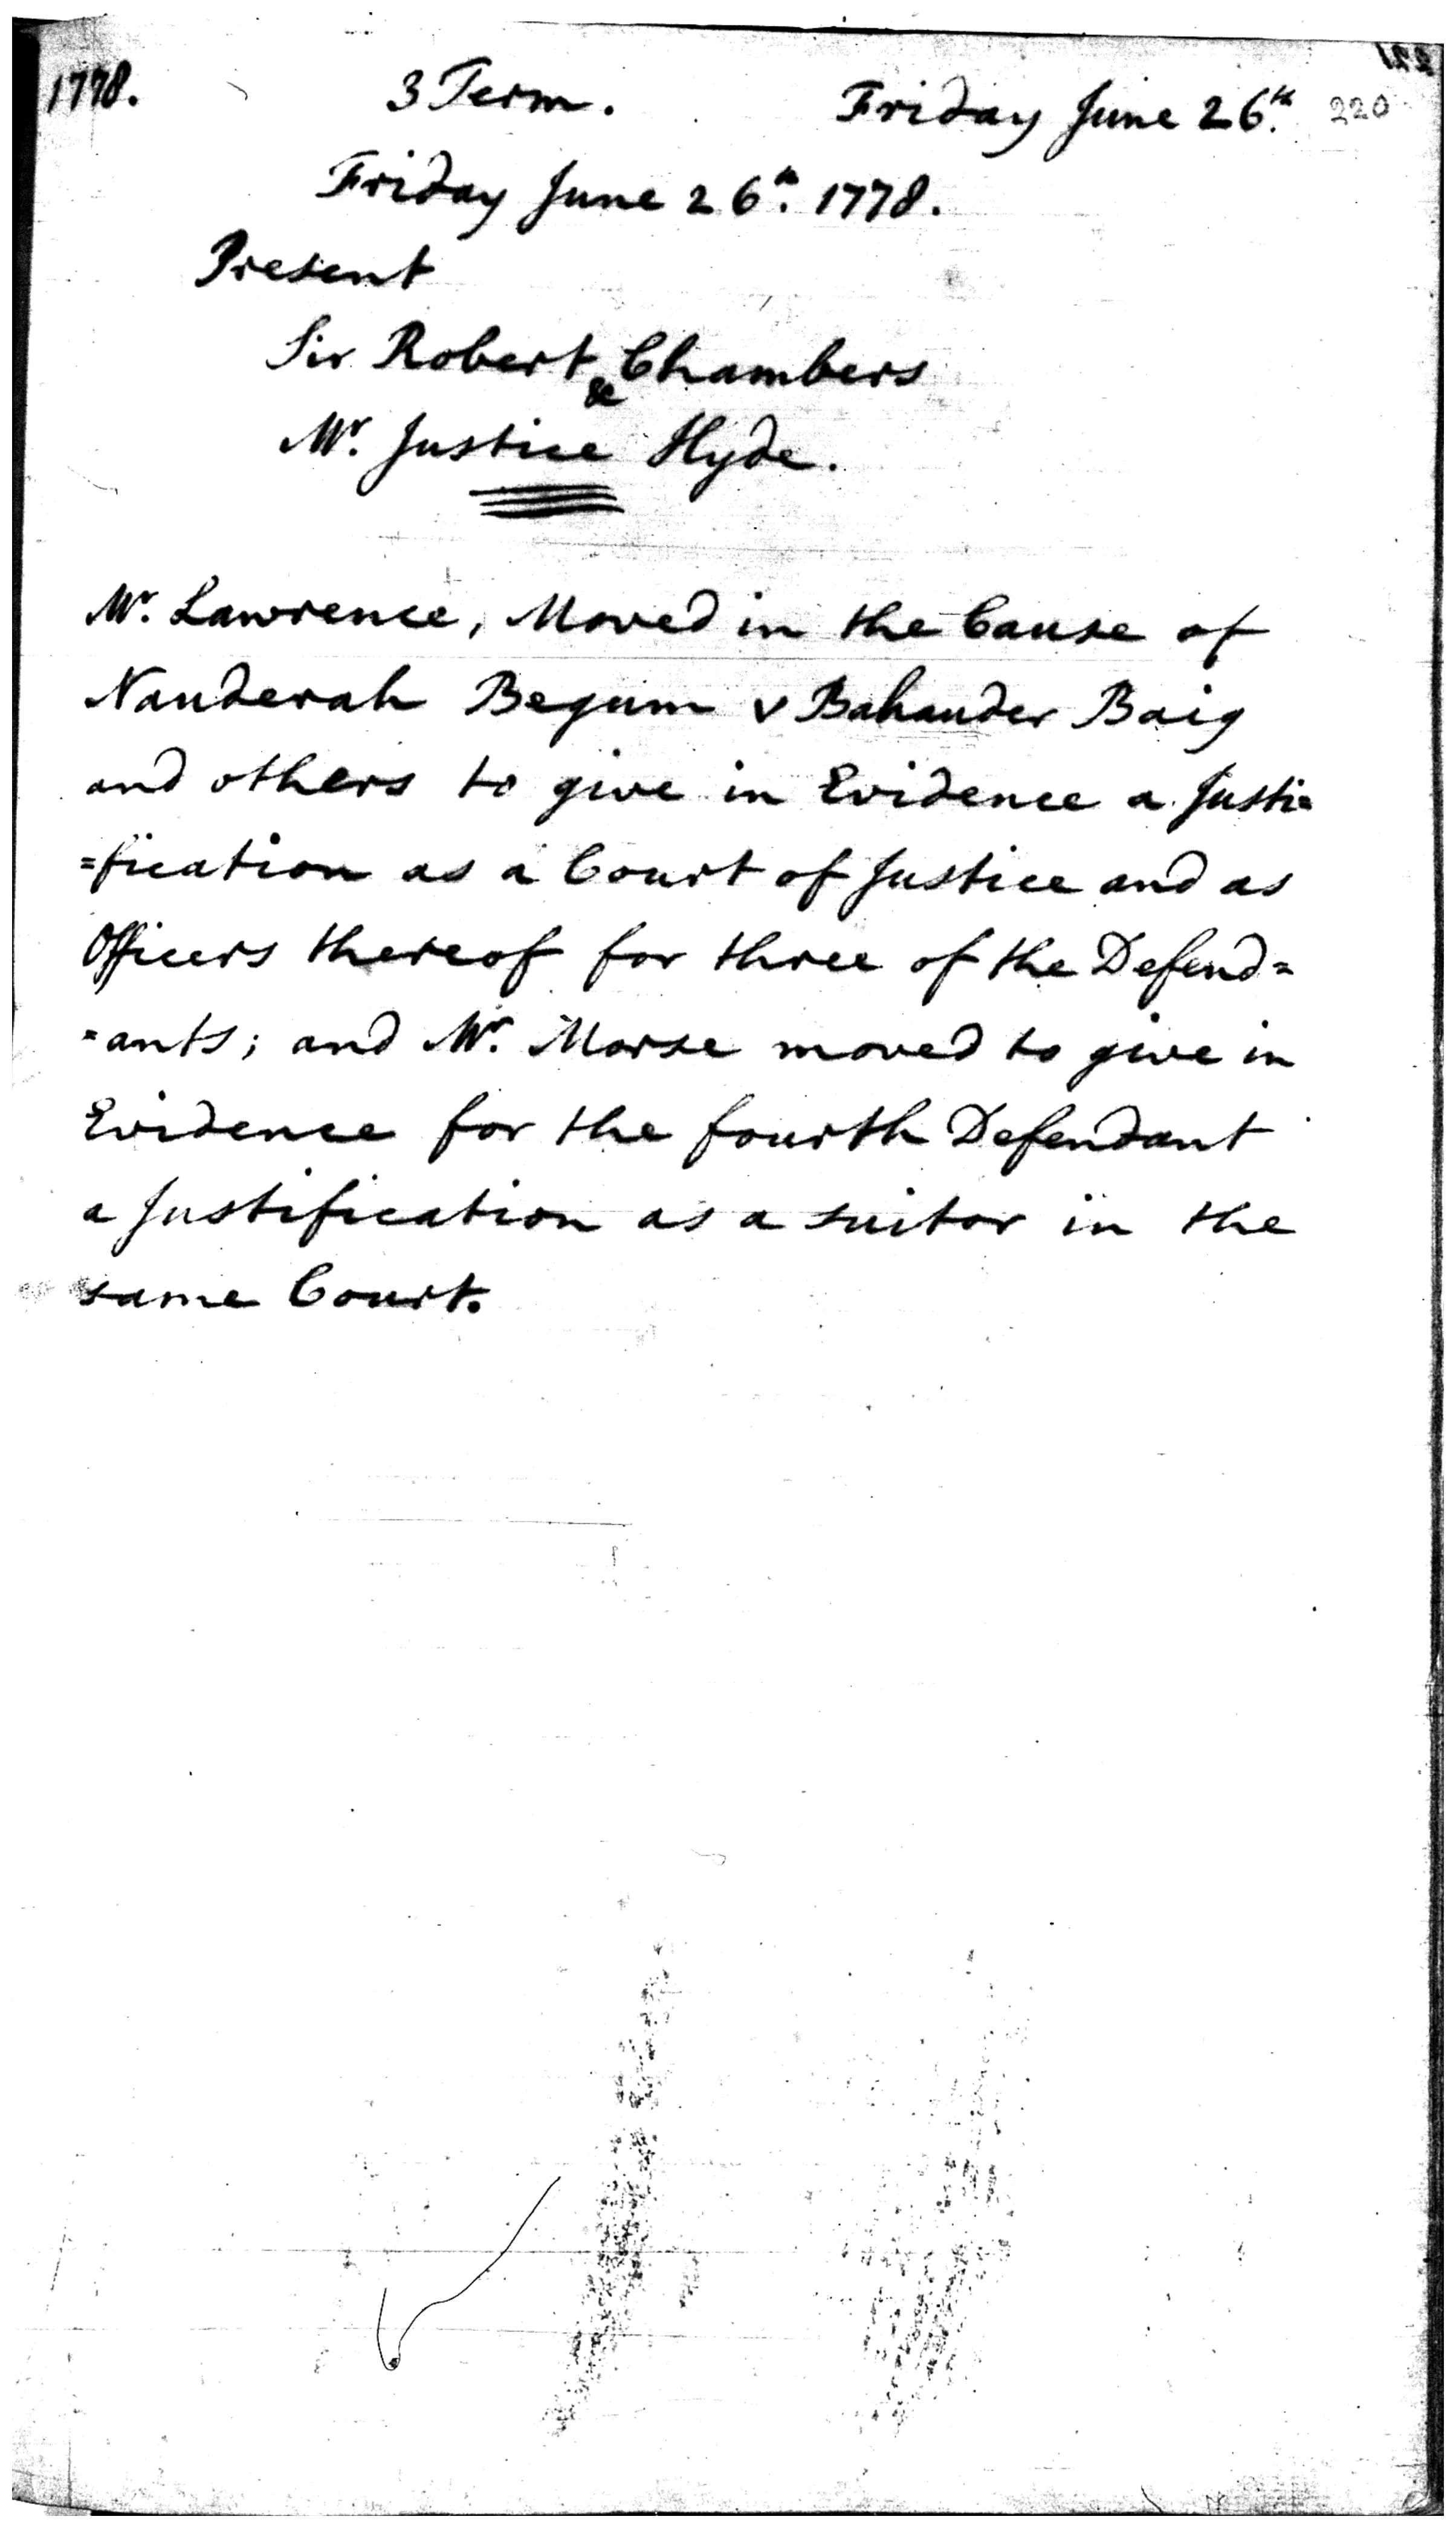 1778. 3 Term. Friday June 26.th 220
Friday June 26.th 1778.
Present
Sir Robert Chambers
&
Mr. Justice Hyde.
Mr. Lawrence, Moved in the Cause of
Nauderah Begum v Bahauder Baig
and others to give in Evidence a Justi=
=fication as a Court of Justice and as
Officers thereof for three of the Defend=
=ants; and Mr. Morse moved to give in
Evidence for the fourth Defendant
a Justification as a suitor in the
same Court.